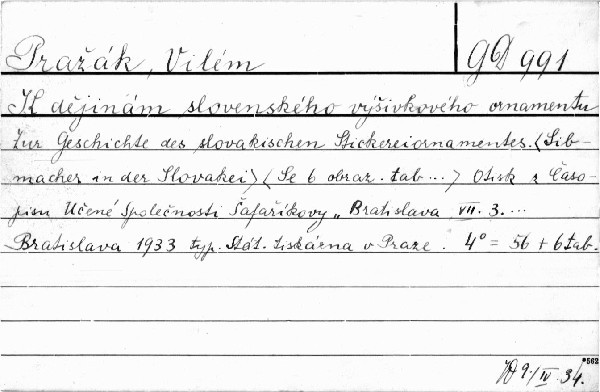 Pražák, Vilém
GD 991
K dějinám slovenského výšivkového ornamentu
Zur Geschichte des slovakischen Stickereiornamentes. (Sib-
macher in der Slovakei) (Se 6 obraz. tab...) Otisk z Časo-
pisu Učené Společnosti Šafaříkovy „Bratislava VII. 3. ...
Bratislava 1933 typ. Stát. tiskárna v Praze. 4° = 56 + 6 tab.
*562
9/IV. 34.